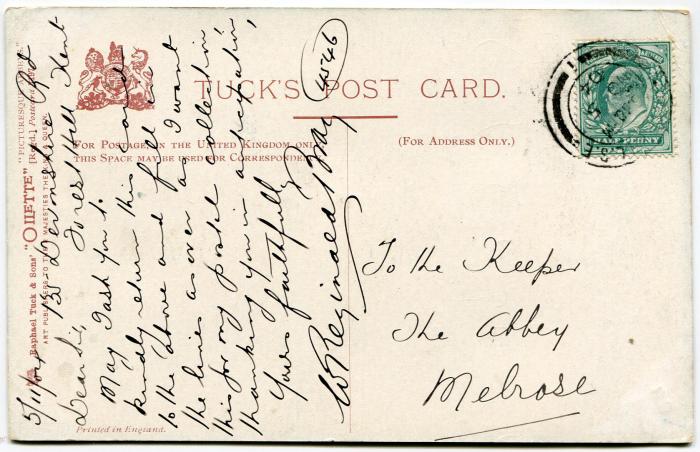 TUCK'S POST CARD.
FOR POSTAGE IN THE UNITED KINGDOM ONLY
THIS SPACE MAY BE USED FOR CORRESPONDENCE
(FOR ADDRESS ONLY.)
Raphael Tuck & Sons' "OILETTE" [Regd.] Postcard
"PICTURESQUE
ART PUBLISHERS TO THEIR MAJESTIES THE KING & QUEEN.
Printed in England.
HALF PENNY
5/11/04
Forest Hill Kent
Dear Sir,
May I ask you to
kindly return this card
to the above and fill in
the lines as over as I want
this for my postal collection
thanking you in anticipation,
Yours faithfully
W Reginald Bray
45246
To the Keeper
The Abbey
Melrose